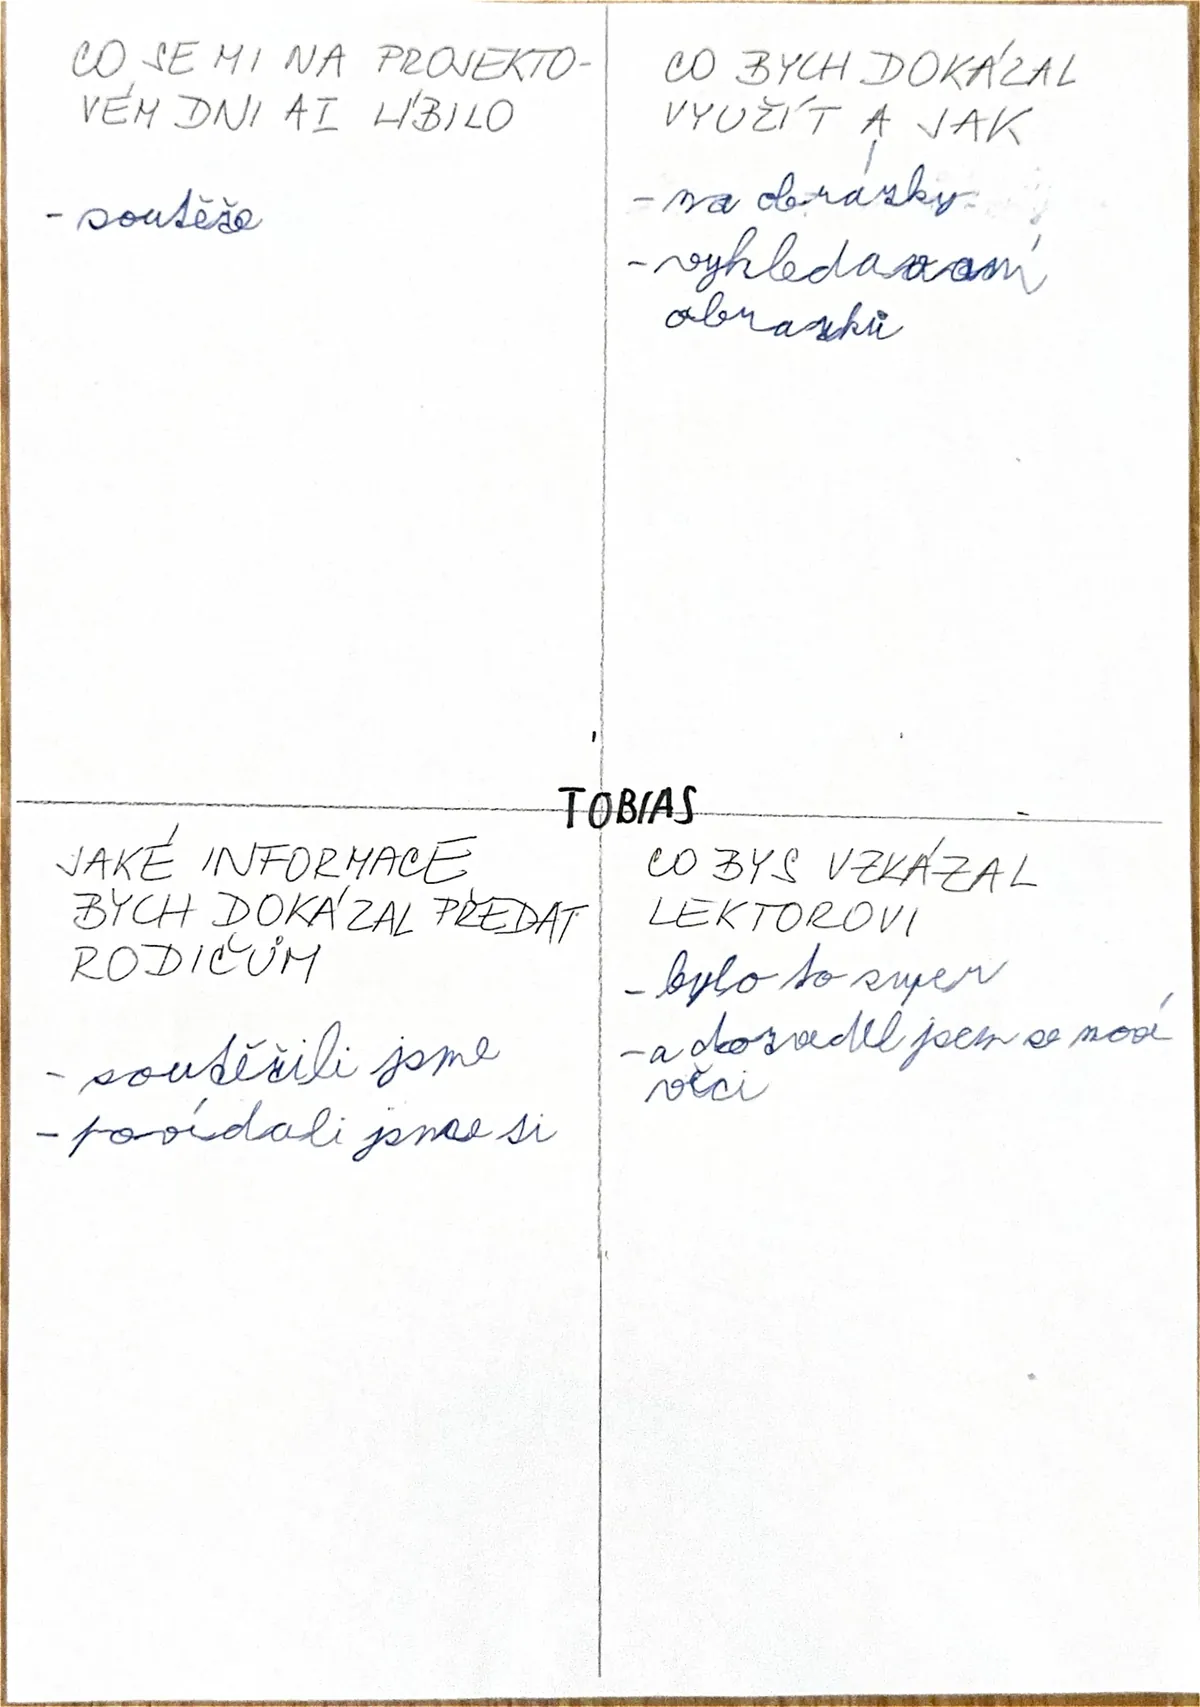 CO SE MI NA PROJEKTO-
VÉM DNI AI LÍBILO
- soutěže
CO BYCH DOKÁZAL
VYUŽÍT A JAK
- na obrázky
- vyhledavaní
obrazků
TOBIAS
JAKÉ INFORMACE
BYCH DOKÁZAL PŘEDAT
RODIČŮM
- soutěžili jsme
- povídali jsme si
CO BYS VZKÁZAL
LEKTOROVI
- bylo to super
- a dozvěděl jsem se nové
věci